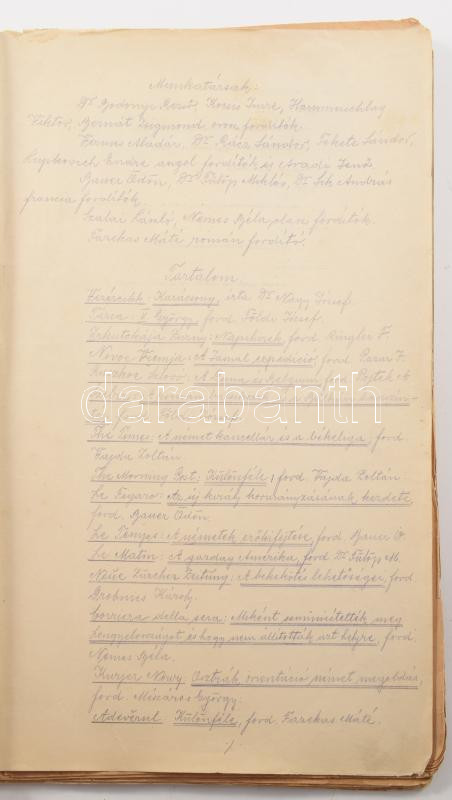 Munkatársak:
Dr Bodonyi Rezső, Kocsis Imre, Hammerschlag
Viktor, Bernát Zsigmond orosz fordítók.
Faunus Aladár, Dr Rácz Sándor, Fekete Sándor,
Endre angol fordítók és Aradi Jenő
Bauer Ödön, Dr Fülöp Miklós, Dr András
francia fordítók.
Szalai László, Nemes Béla olasz fordítók.
Fazekas Máté román fordító.
Tartalom
Vezércikk: Karácsony, irta Dr Nagy József.
Tárca: V. György, ford. Földi József.
Napihirek, ford. Ringler F.
Novoe Vremja: A Jamal expedició, ford.
Ruszkoe Slovo: A Duma és
darabanth
The Times: A német kancellár és a békeliga, ford.
Vajda Zoltán.
The Morning Post: Különféle, ford. Vajda Zoltán
Le Figaro: Az új király kormányzásának kezdete,
ford. Bauer Ödön.
Le Temps: A németek erőkifejtése, ford. Bauer Ö.
Le Matin: A gazdag Amerika, ford. Dr Fülöp M.
Neue Zürcher Zeitung: A békekötés lehetőségei, ford.
Károly.
Corriera della sera: Miként semmisítették meg
Lengyelországot és hogy nem állították azt helyre, ford.
Nemes Béla.
Kurjer Nowy: Osztrák orientáció német megoldás,
ford. Mészáros György.
Adevĕrul: Különféle, ford. Fazekas Máté.
1